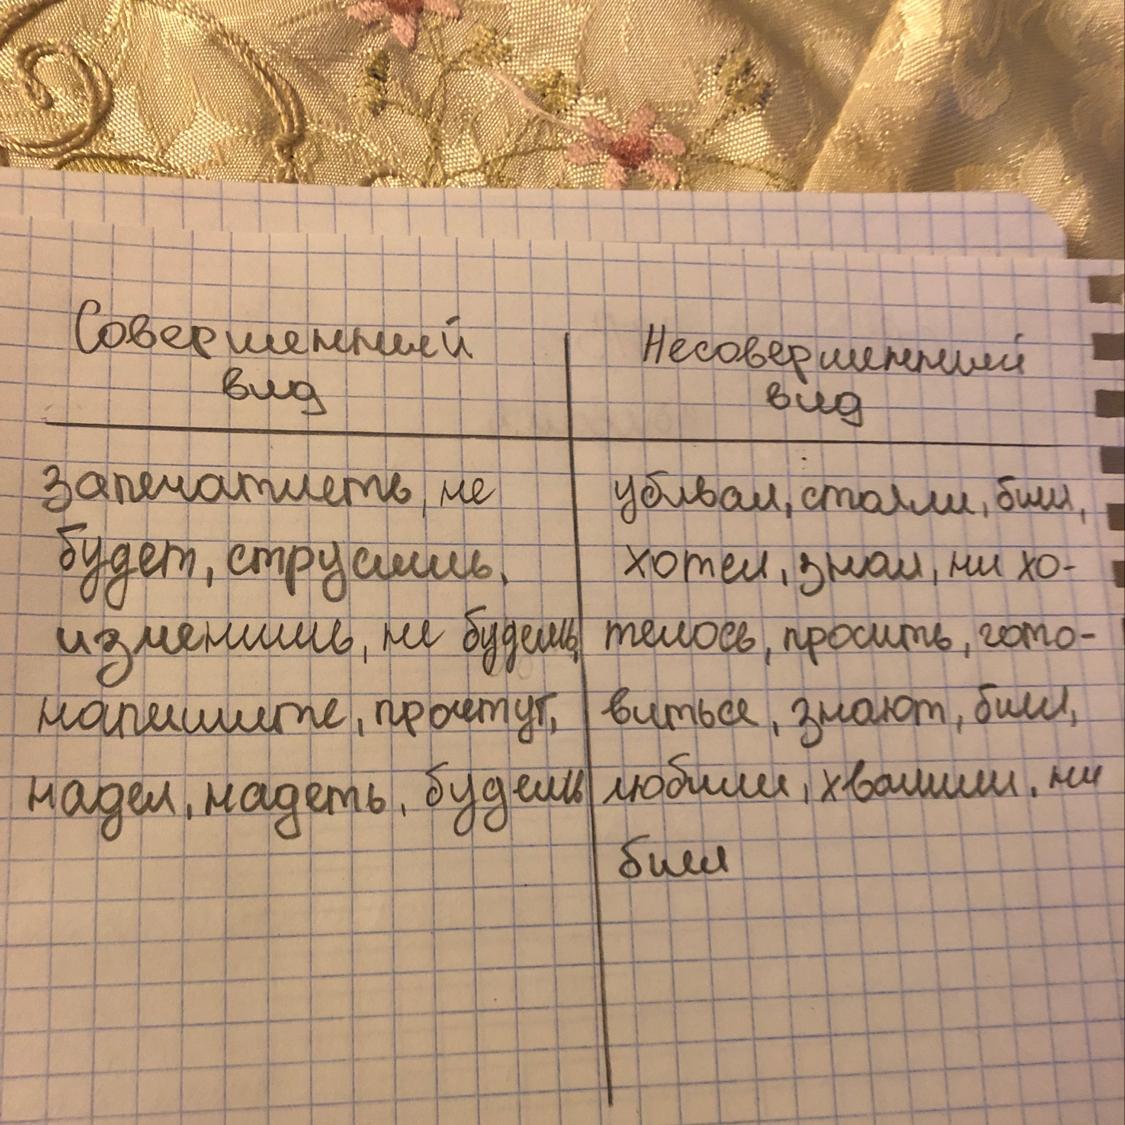 Совершенный
вид
Несовершенный
вид
запечатлеть, не
будет, струсишь,
изменишь, не будешь,
напишите, прочтут,
надел, надеть, будешь
убивал, стояли, был,
хотел, знал, ни хо-
телось, просить, гото-
виться, знают, был,
любили, хвалили, ни
был